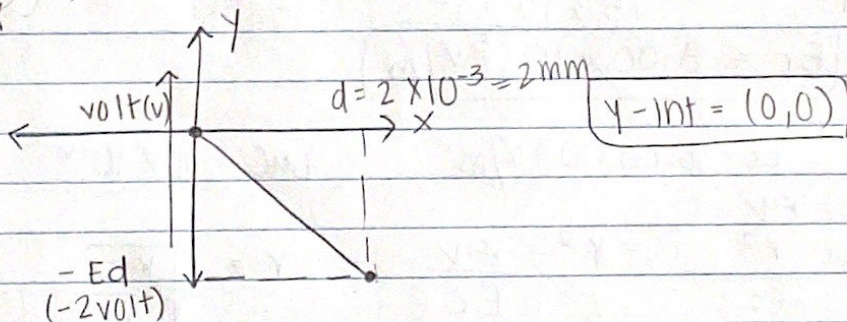 Y
volt(v)
d = 2 × 10⁻³ = 2mm
X
Y-int = (0,0)
- Ed
(-2volt)